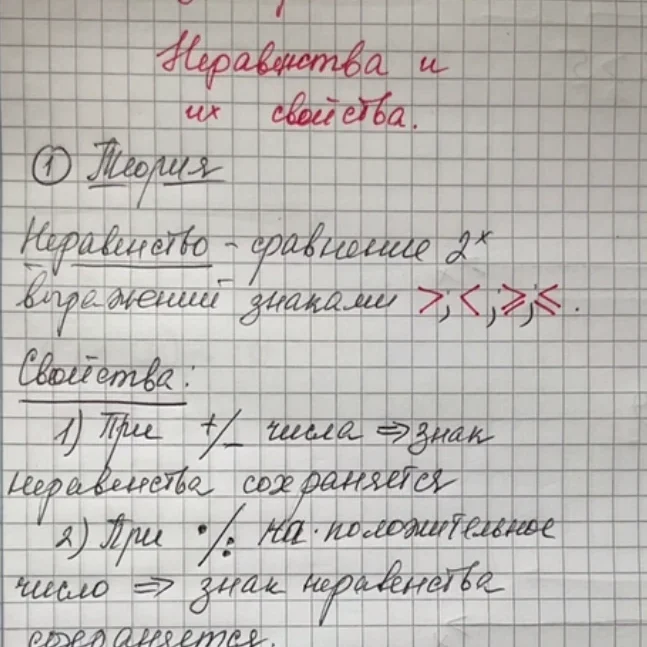 Неравенства и
их свойства.
① Теория
Неравенство - сравнение 2ˣ
выражений знаками >; <; ⩾; ⩽.
Свойства:
1) При +/- числа ⇒ знак
неравенства сохраняется
2) При •/: на положительное
число ⇒ знак неравенства
сохраняется.